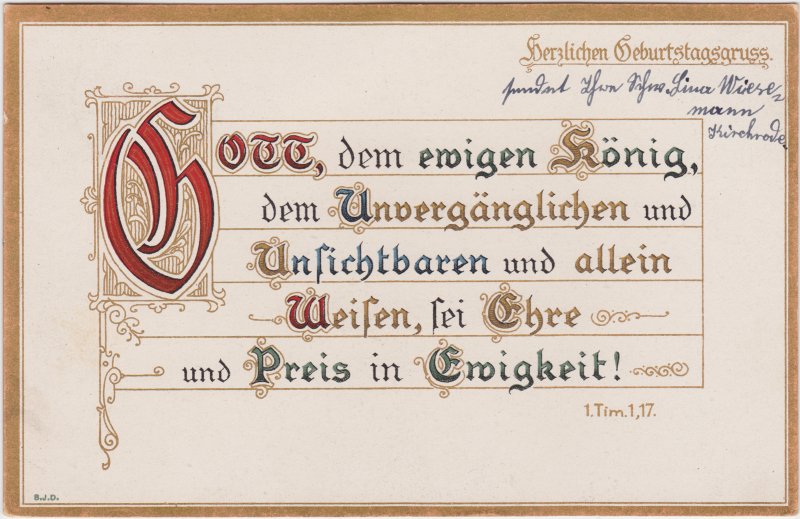 Herzlichen Geburtstagsgruss.
sendet Ihre Schw. Lina Wiese-
mann
Kirchrode
GOTT, dem ewigen König,
dem Unvergänglichen und
Unſichtbaren und allein
Weiſen, ſei Ehre
und Preis in Ewigkeit!
1.Tim.1,17.
B.J.D.